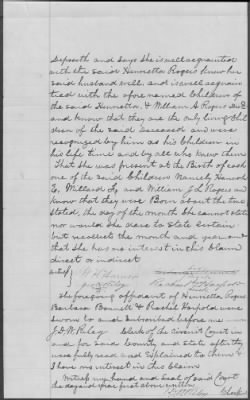 deposeth and says she is well acquainted
with the said Henrietta Rogers knew her
said husband well, and is well acquain
ted with the afore named Children of
the said Henrietta, & William A Rogers Decd
and know that they are the only living chil
dren of the said deceased and were
recognized by him as his children in
his life time and by all who knew them
That she was present at the Birth of each
one of the said Children Namely Harrod
E, Willard G, and William J L Rogers and
know that they were Born about the time
stated, the day of the month she cannot state
nor would she dare to state certain
but recollect the month and year and
that she has no interest in this claim
direct or indirect
attest
Rachel Harfold
The foregoing affidavit of Henrietta Rogers
Barbara Bennett & Rachel Harfold were
sworn to and subscribed before me
J. D. W. Riley Clerk of the Circuit Court in
and for said County and state after they
were fully read and explained to them &
I have no interest in this claim
Witness my hand and seal of said Court
the day and year first above written
Clerk